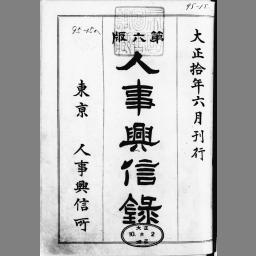 大正拾年六月刊行
第六版
人事興信錄
東京 人事興信所
95-15
大正
10. 8. 2